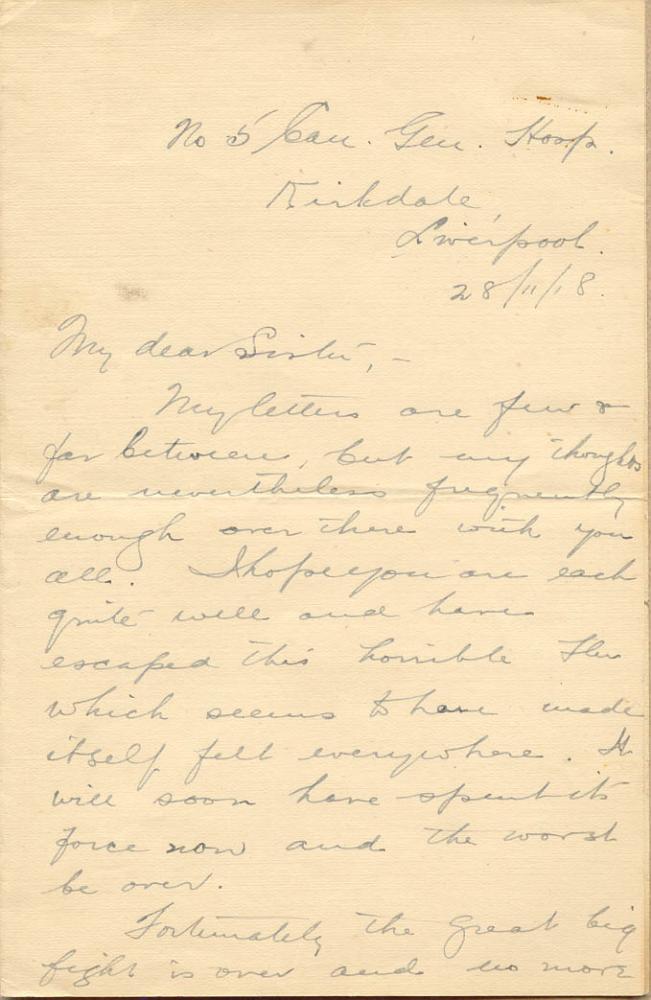 No 5 Can. Gen. Hosp.
Kirkdale,
Liverpool.
28/11/18.
My dear Sister, -
My letters are few &
far between, but my thoughts
are nevertheless frequently
enough over there with you
all. I hope you are each
quite well and have
escaped this horrible Flu
which seems to have made
itself felt everywhere. It
will soon have spent its
force now and the worst
be over.
Fortunately the great big
fight is over and no more